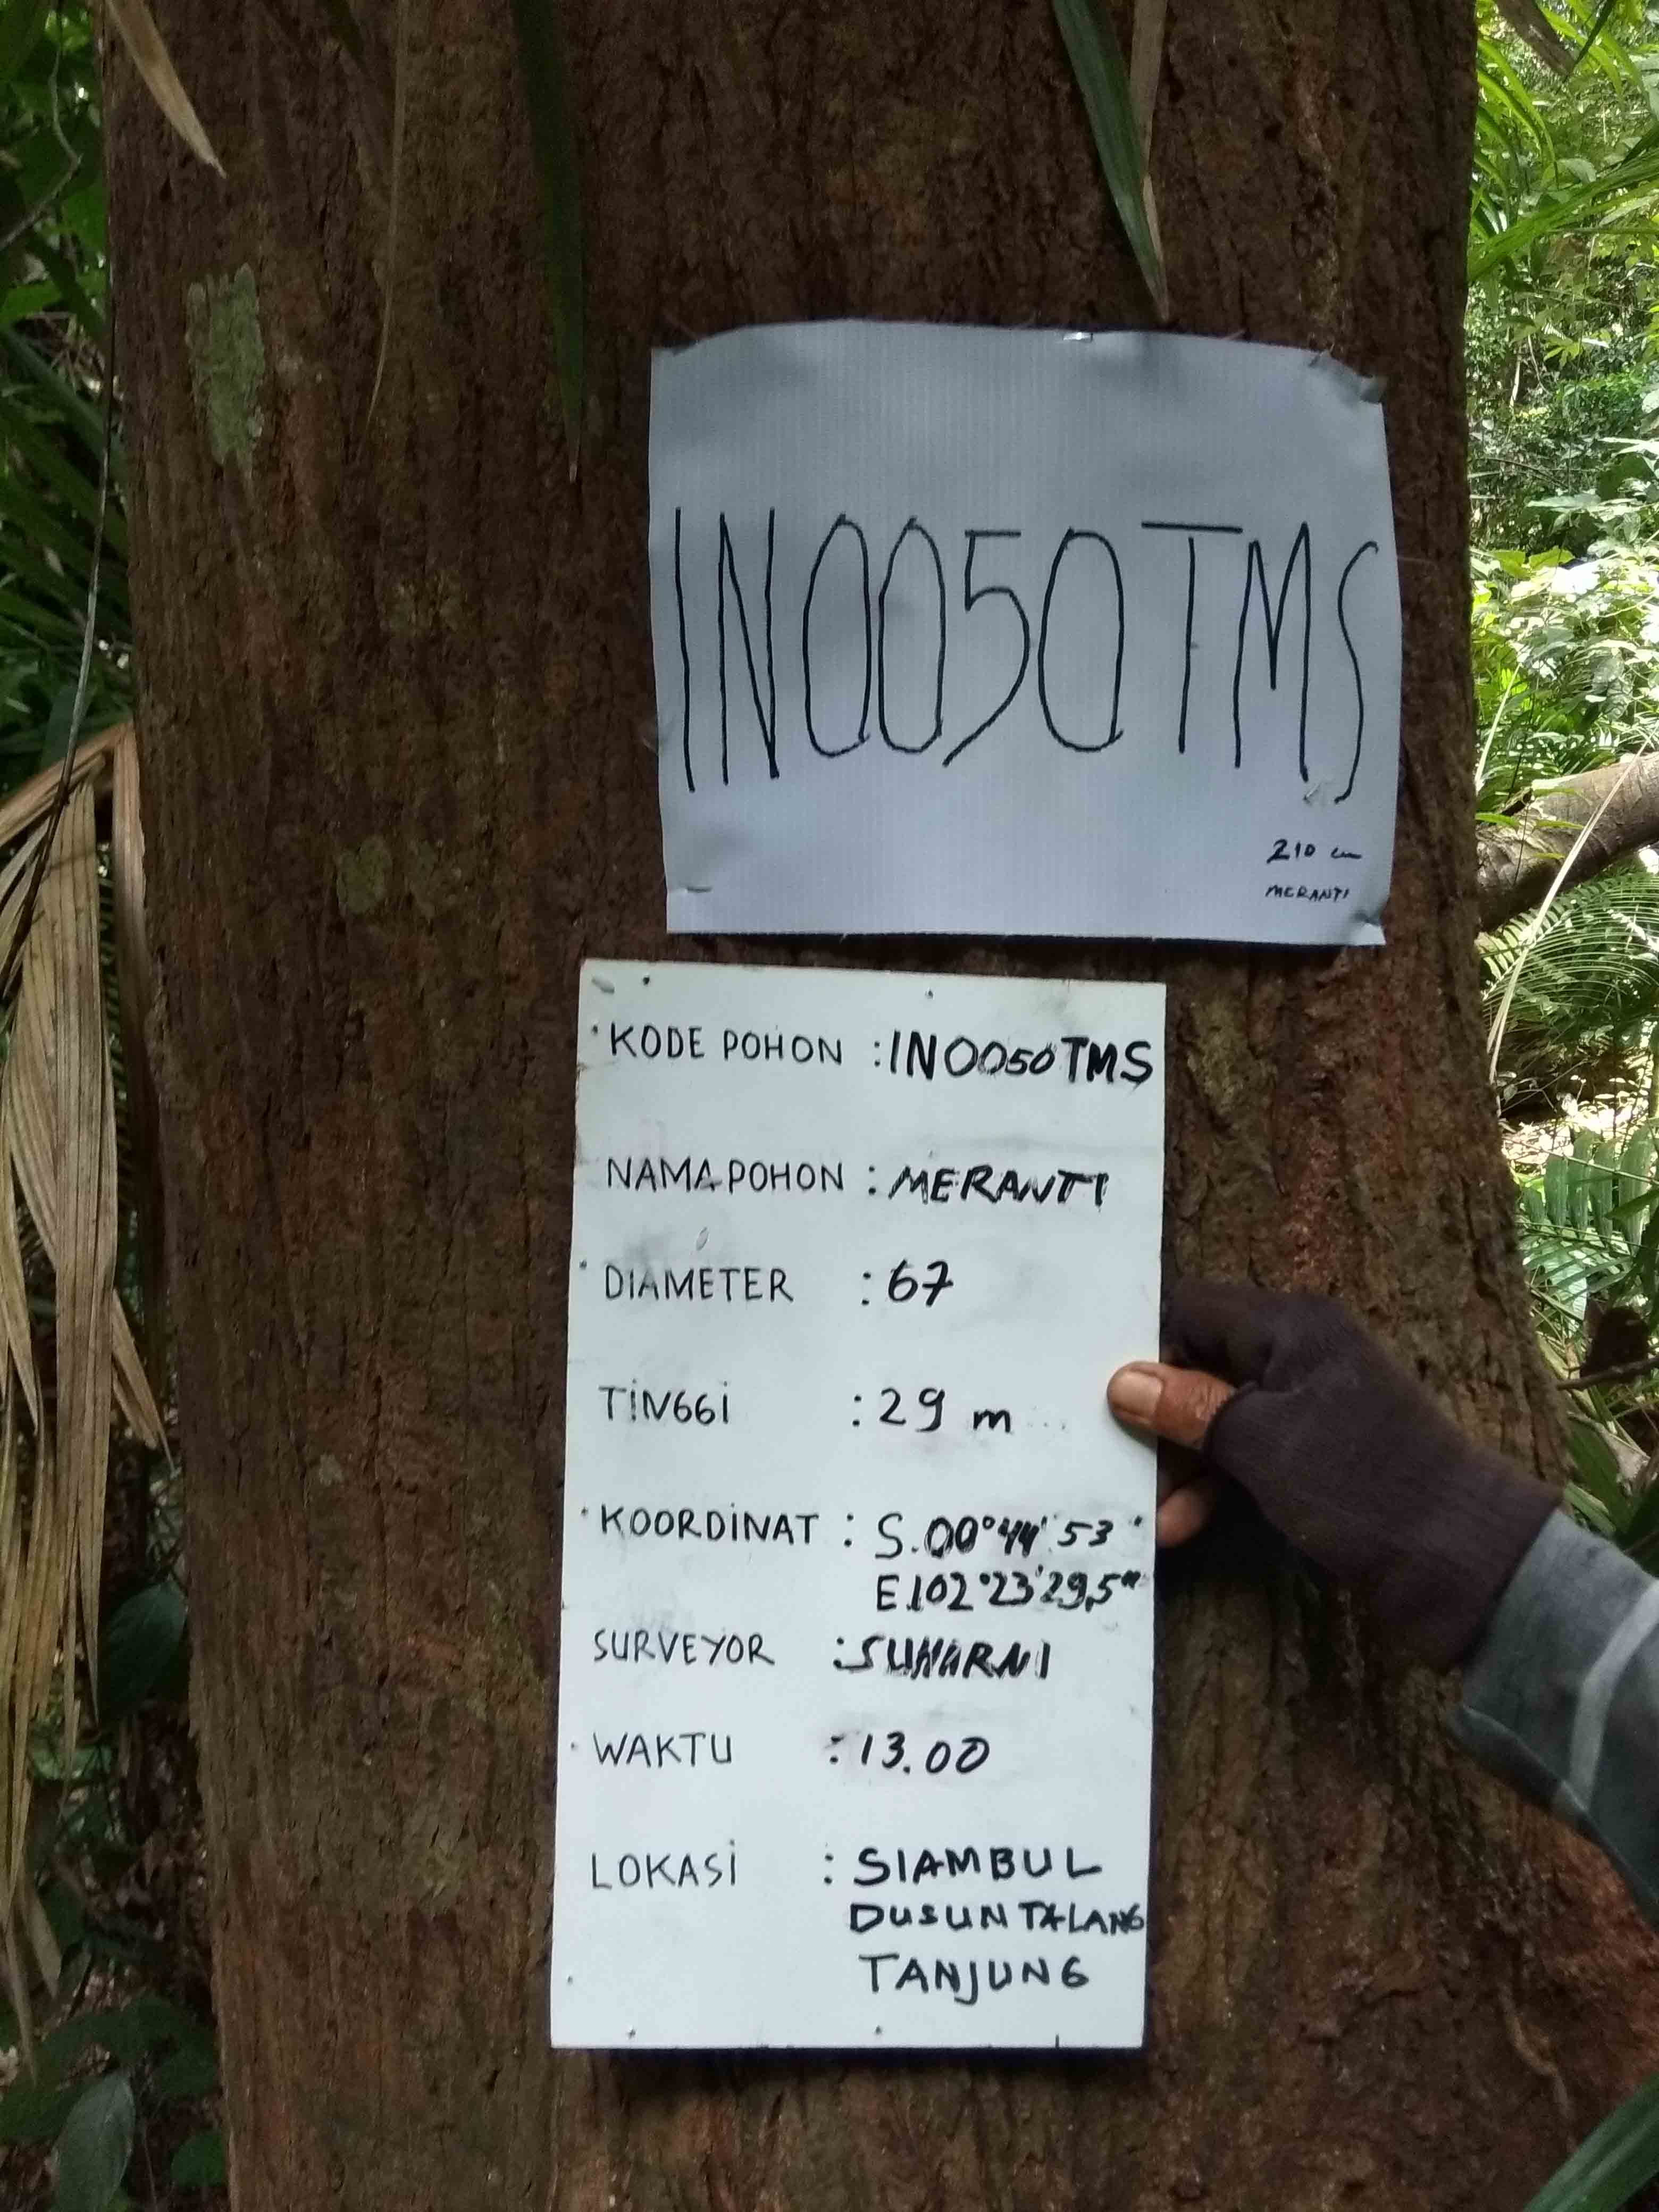 IN0050TMS
210 cm
MERANTI
KODE POHON : IN0050TMS
NAMA POHON : MERANTI
DIAMETER : 67
TINGGI : 29 m
KOORDINAT : S.00°44' 53"
E.102°23'29,5"
SURVEYOR : SUHARNI
WAKTU : 13.00
LOKASI : SIAMBUL
DUSUN TALANG
TANJUNG